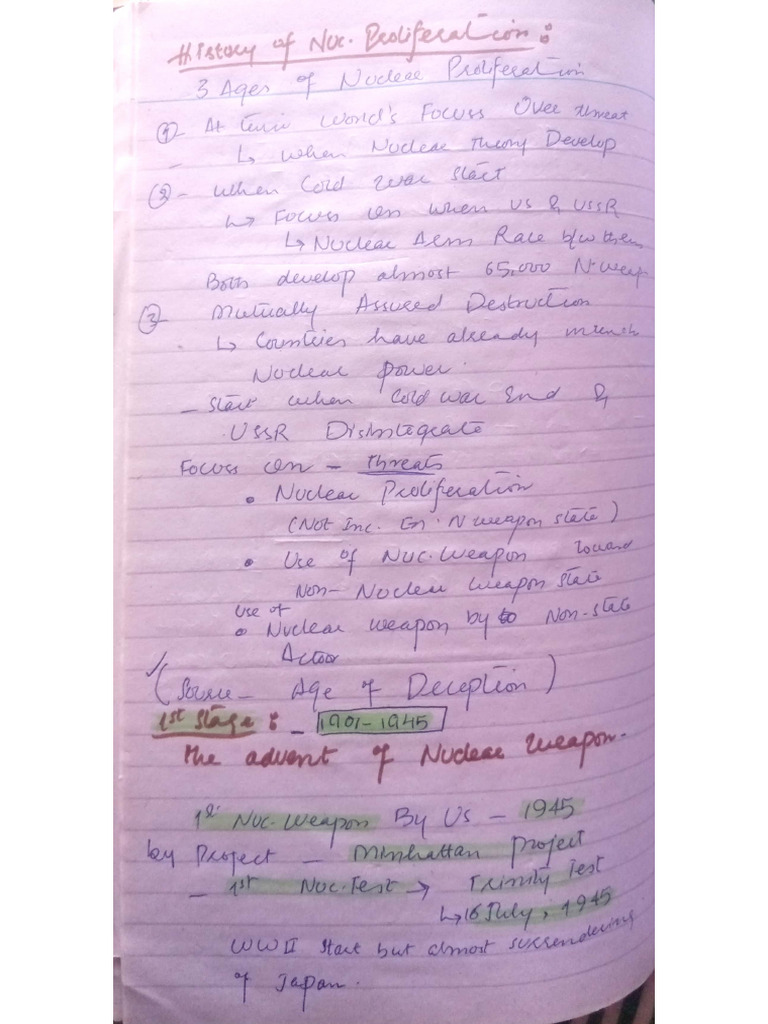 History of Nuc. Proliferation :
3 Ages of Nuclear Proliferation
① - At World's Focus Over threat
↳ when Nuclear Theory Develop
② - when Cold war start
↳ Focus on when US & USSR
↳ Nuclear Arm Race b/w them
Both develop almost 65,000 N-weap
③ Mutually Assured Destruction
↳ Countries have already much
Nuclear power.
- start when Cold war End &
USSR Disintegrate
Focus on - threats
• Nuclear Proliferation
(Not Inc. in N weapon state)
• Use of Nuc. Weapon toward
Non- Nuclear weapon state
use of
• Nuclear weapon by Non-state
Actor
(Source - Age of Deception)
1st stage : - 1901-1945
The advent of Nuclear weapon.
1st Nuc. Weapon By US - 1945
by Project - Minhattan project
- 1st Nuc. Test → Trinity Test
↳ 16 July, 1945
WW II start but almost surrendering
of Japan.